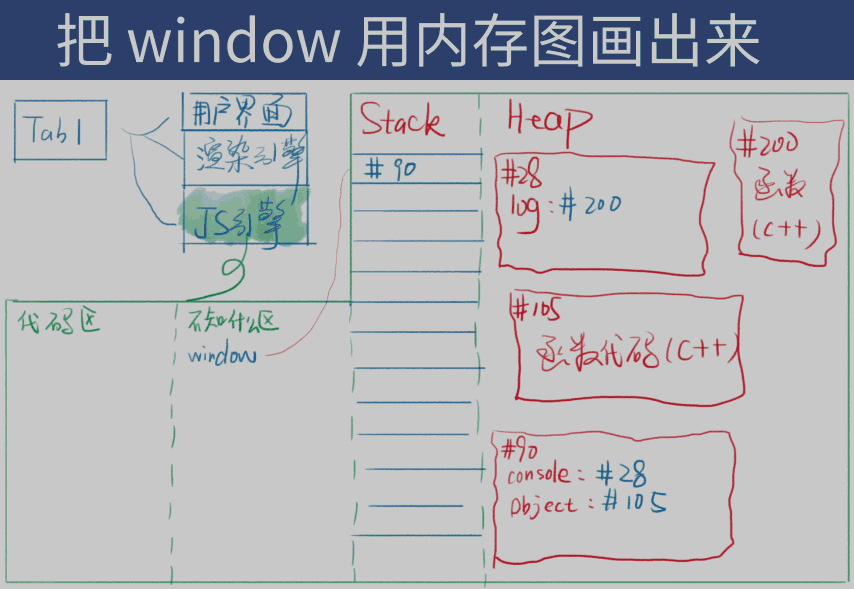 把 window 用内存图画出来
Tab1
用户界面
渲染引擎
JS引擎
代码区
不知什么区
window
Stack
#90
Heap
#28
log:#200
#200
函数
(C++)
#105
函数代码(C++)
#90
console:#28
Object:#105